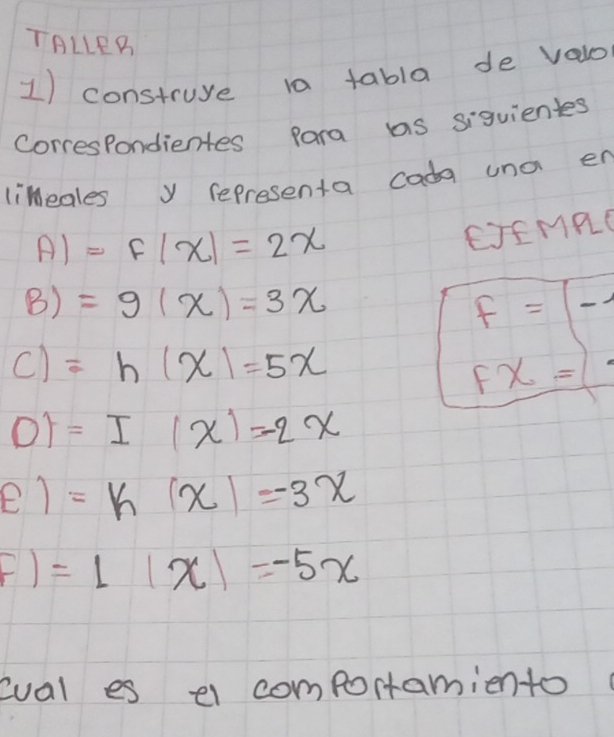 TALLER
1) construye la tabla de valo
correspondientes para las siguientes
limeales y representa cada una en
A) = f(x) = 2x
EJEMPLO
B) = g(x) = 3x
f = -
C) = h(x) = 5x
fx = -
D) = I (x) = -2x
E) = K (x) = -3x
F) = L (x) = -5x
cual es el comportamiento